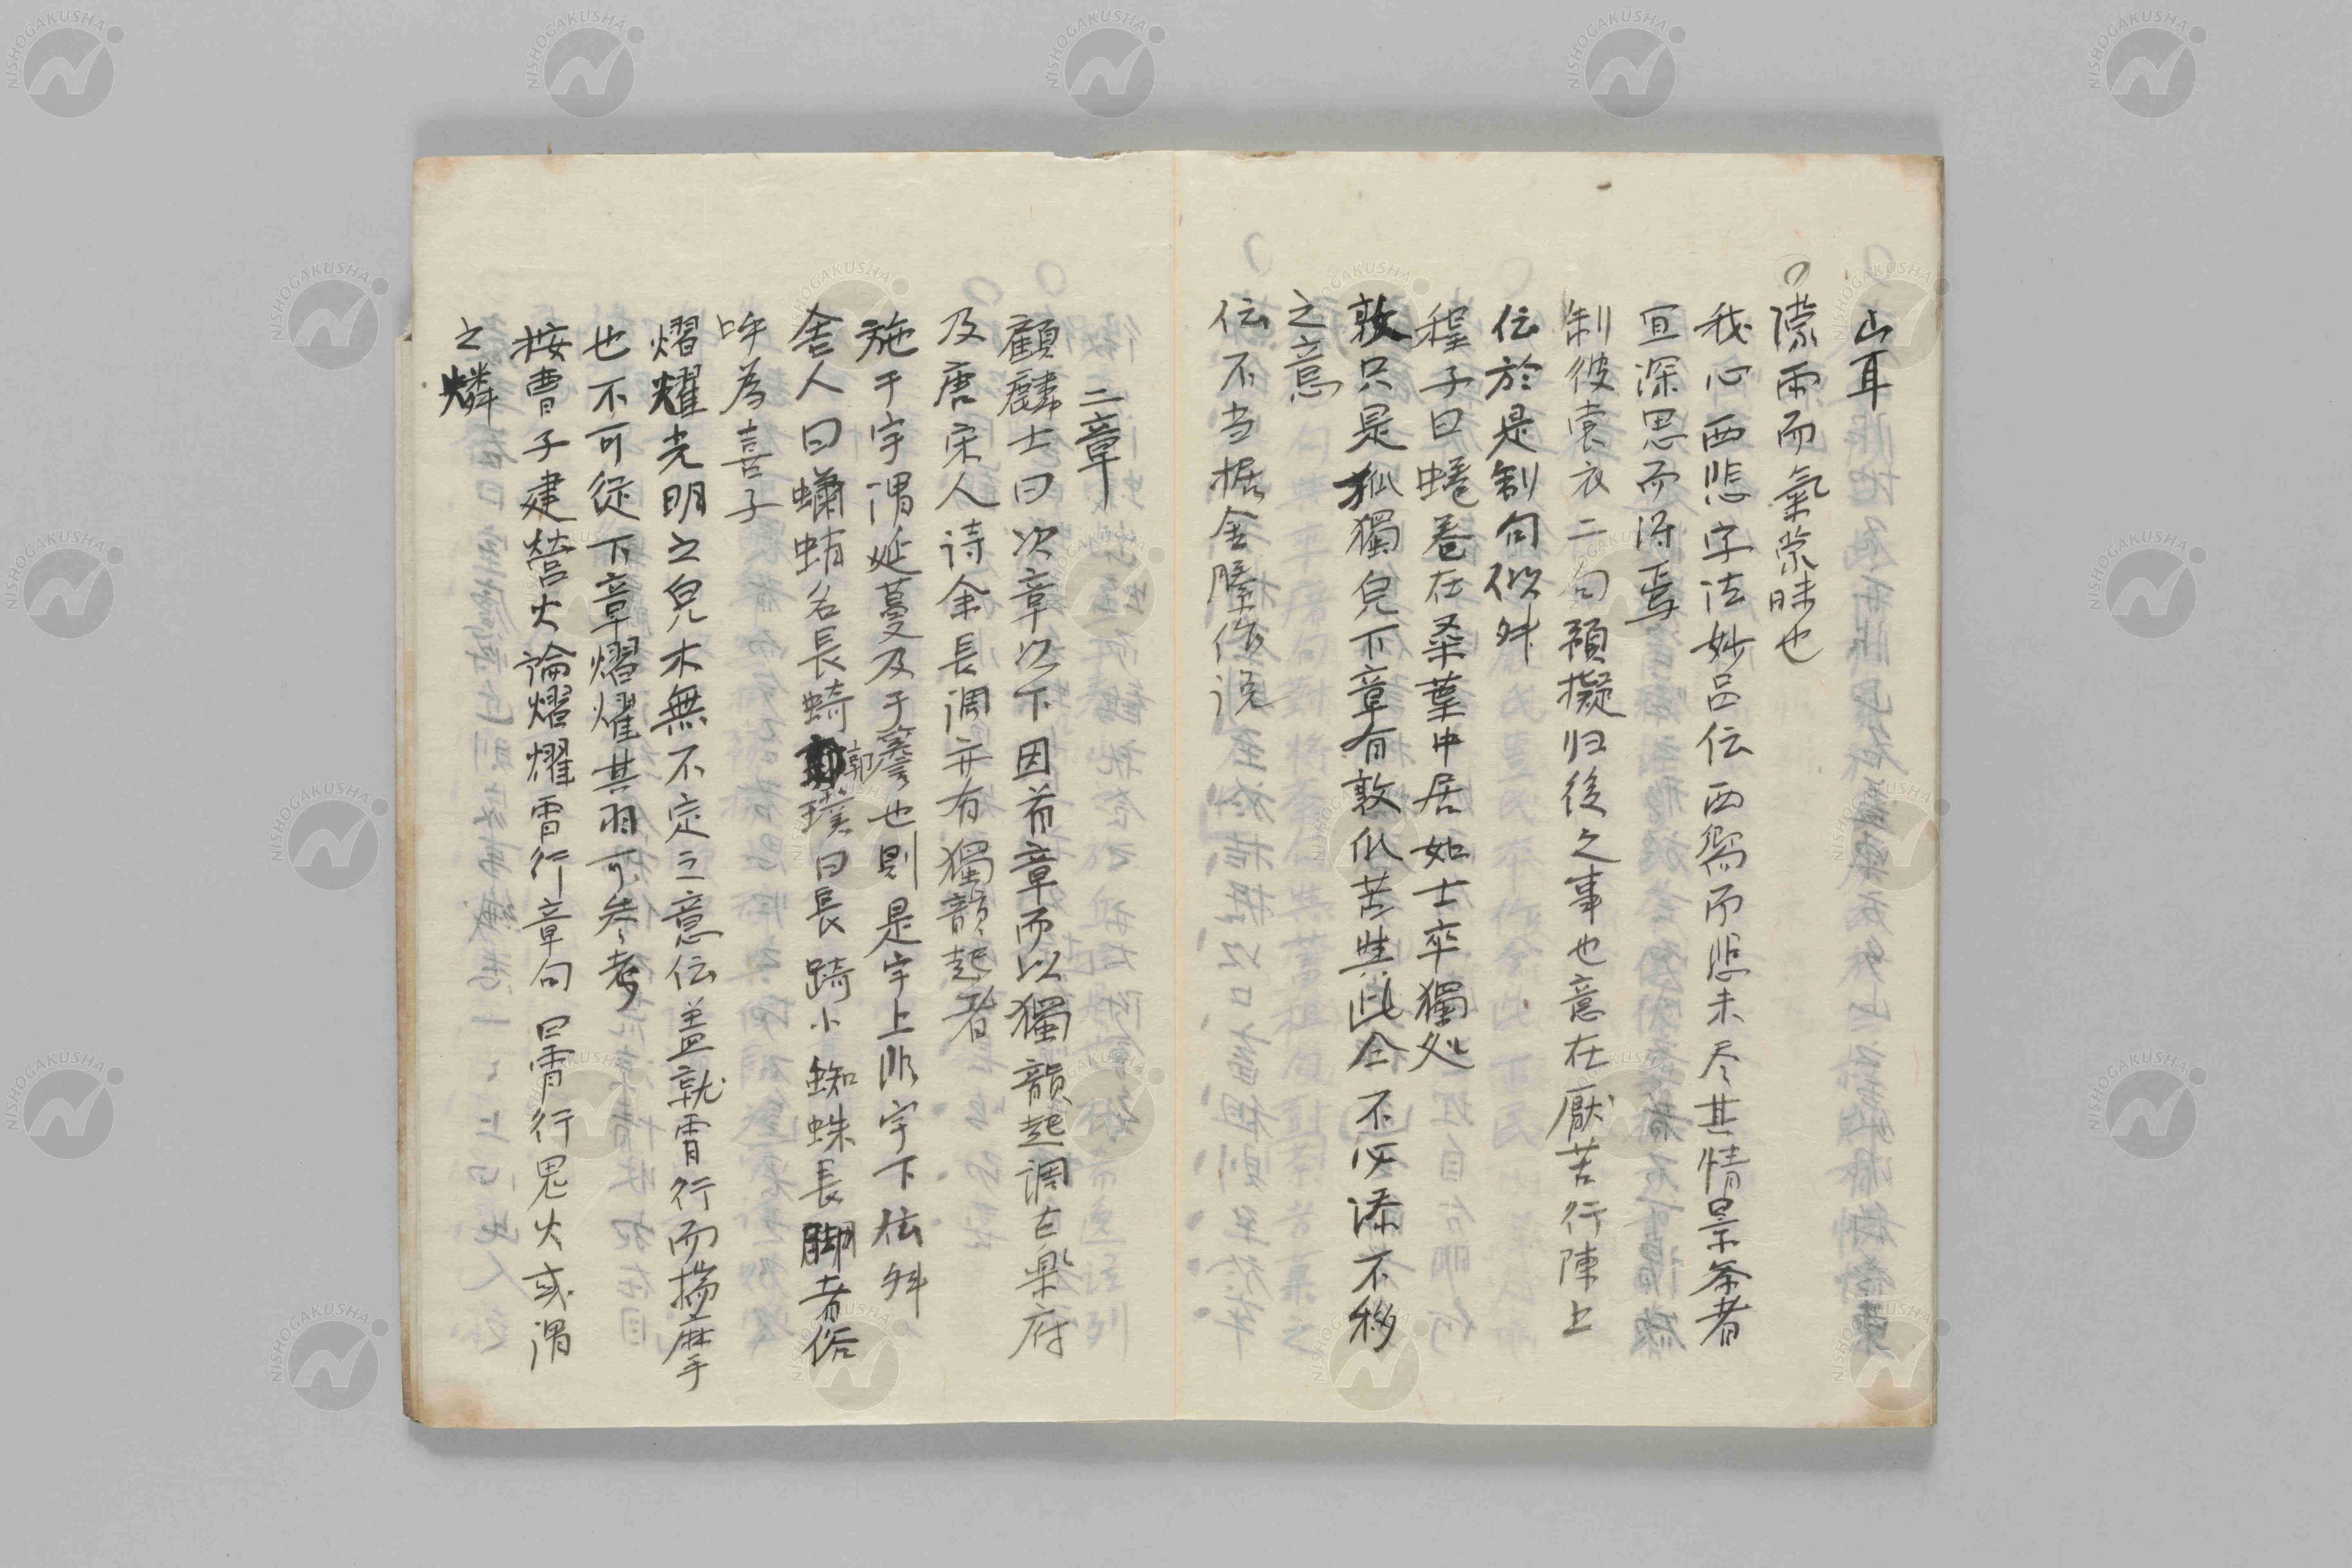 山耳
〇濛雨而氣蒙昧也
我心西悲字法妙呂伝西嚮而悲未尽其情景茶者
宜深思而得焉
制彼裳衣二句預擬归後之事也意在厭苦行陳上
伝於是制句似舛
程子曰蜷巻在桑葉中居如士卒獨処
敦只是孤獨皃下章有敦瓜苦与此仝不必添不移
之意
伝不当据金縢作説
二章
顧麟士曰次章以下因首章而以獨韻起調古楽府
及唐宋人詩余長調亦有獨韻起者
施于宇謂延蔓及于簷也則是宇上非宇下伝舛
舎人曰蠨蛸名長蜻郭璞曰長踦小蜘蛛長脚者俗
呼為喜子
熠燿光明之皃木無不定之意伝盖就宵行而揣摩
也不可從下章熠燿其羽可参考
按曹子建螢火論熠燿宵行章句曰宵行鬼火或謂
之燐